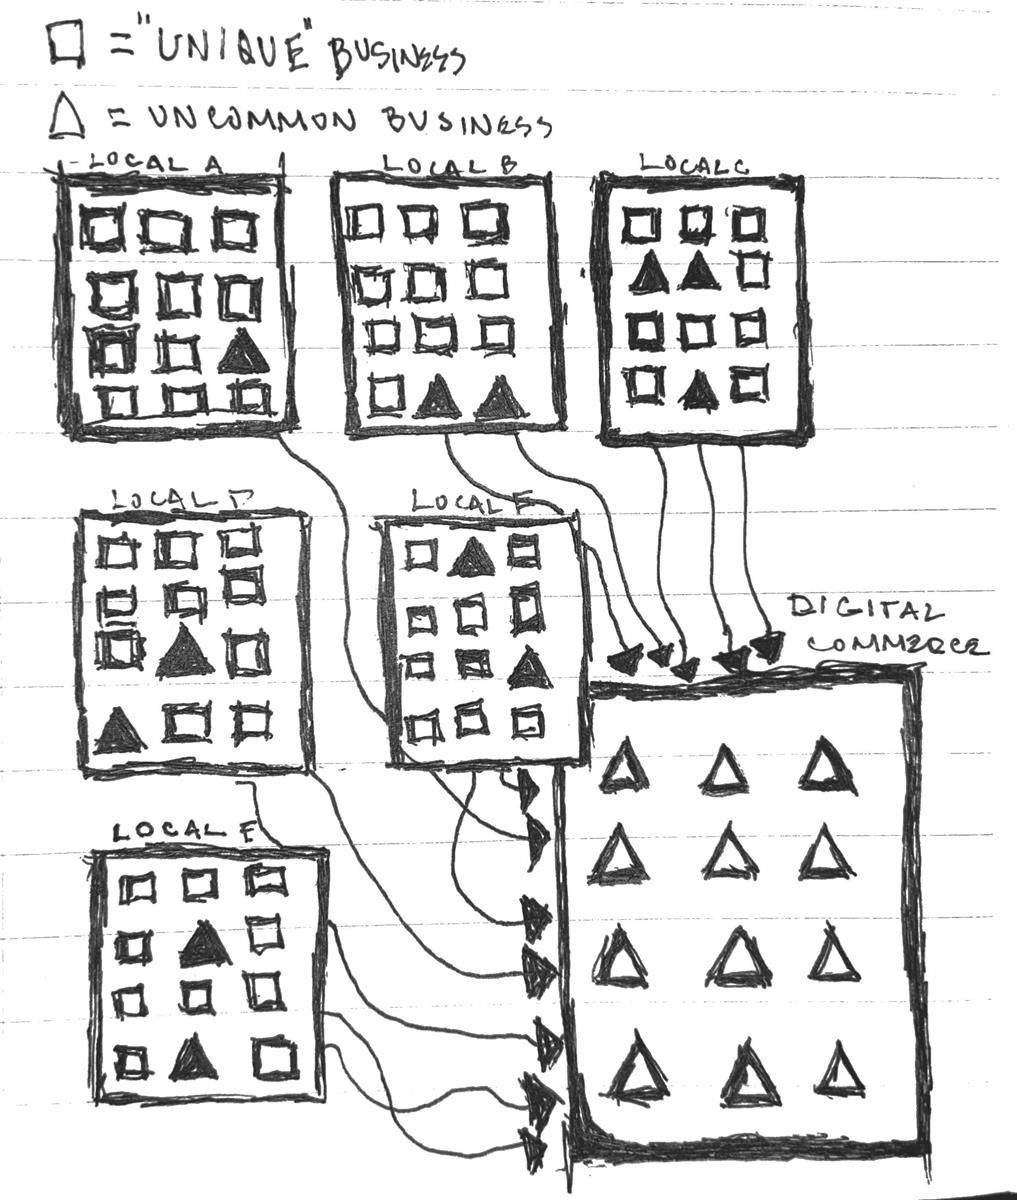 □ = "UNIQUE" BUSINESS
△ = UNCOMMON BUSINESS
LOCAL A
LOCAL B
LOCAL C
LOCAL D
LOCAL F
DIGITAL
COMMERCE
LOCAL E